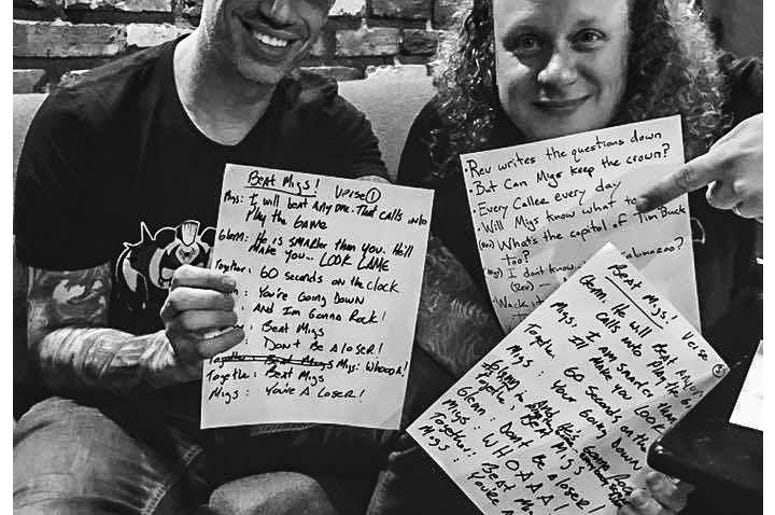 Beat Migs! Verse 1
Migs: I will beat Anyone. That calls into
Play the Game
Glenn: He is smarter than you. He'll
Make you... LOOK LAME
Together: 60 seconds on the clock
: You're Going Down
: And Im Gonna Rock!
: Beat Migs
Don't Be A loser!
Together: Beat Migs Migs: Whoooa!
Togethe: Beat Migs
Migs: You're A Loser!
· Rev writes the questions down
· But Can Migs keep the crown?
· Every Caller every day
· Will Migs know what to
(Rev) What's the capitol of Tim Buck
too?
(Migs) I dont know
(Rev) -
Wack
Beat Migs! Verse 3
Glenn: He will Beat Anyone
Calls into Play the
Migs: I am smarter than
I'll Make you Look
Together: 60 Seconds on the
Migs: Your Going Down
And He's Gonna Rock
Together: Beat Migs
Glenn: Don't Be a loser!
Migs: WHOAAA!
Together: Beat Migs
Migs: You're A